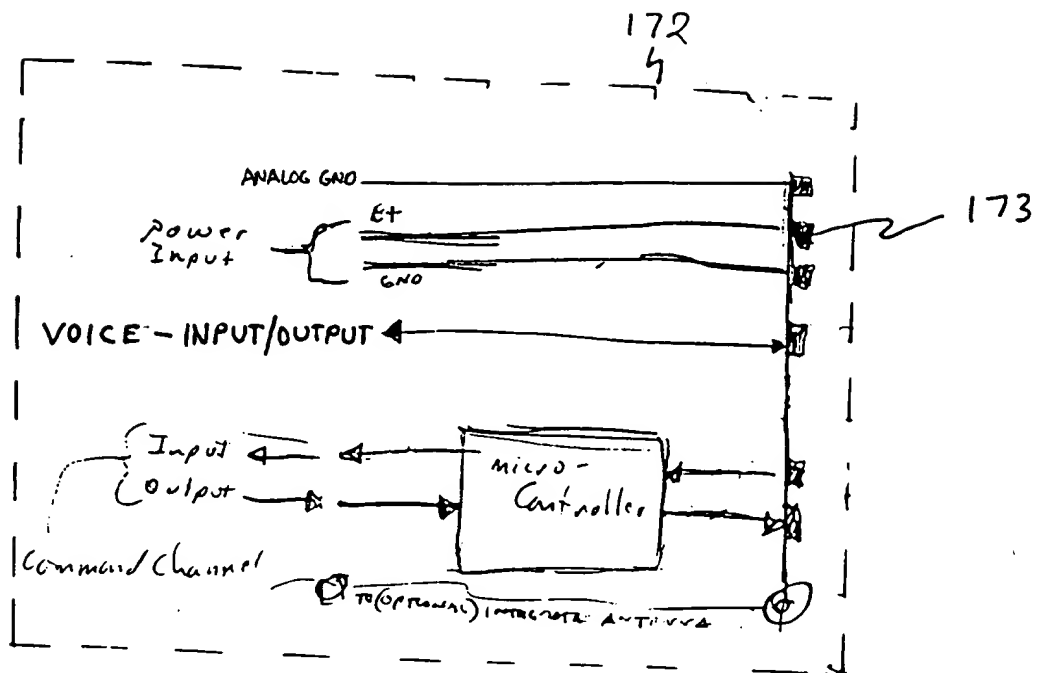 172
ANALOG GND
173
E+
Power
Input
GND
VOICE - INPUT/OUTPUT
Input
Output
micro-
Controller
Command Channel
TO (OPTIONAL) INTEGRATE ANTENNA